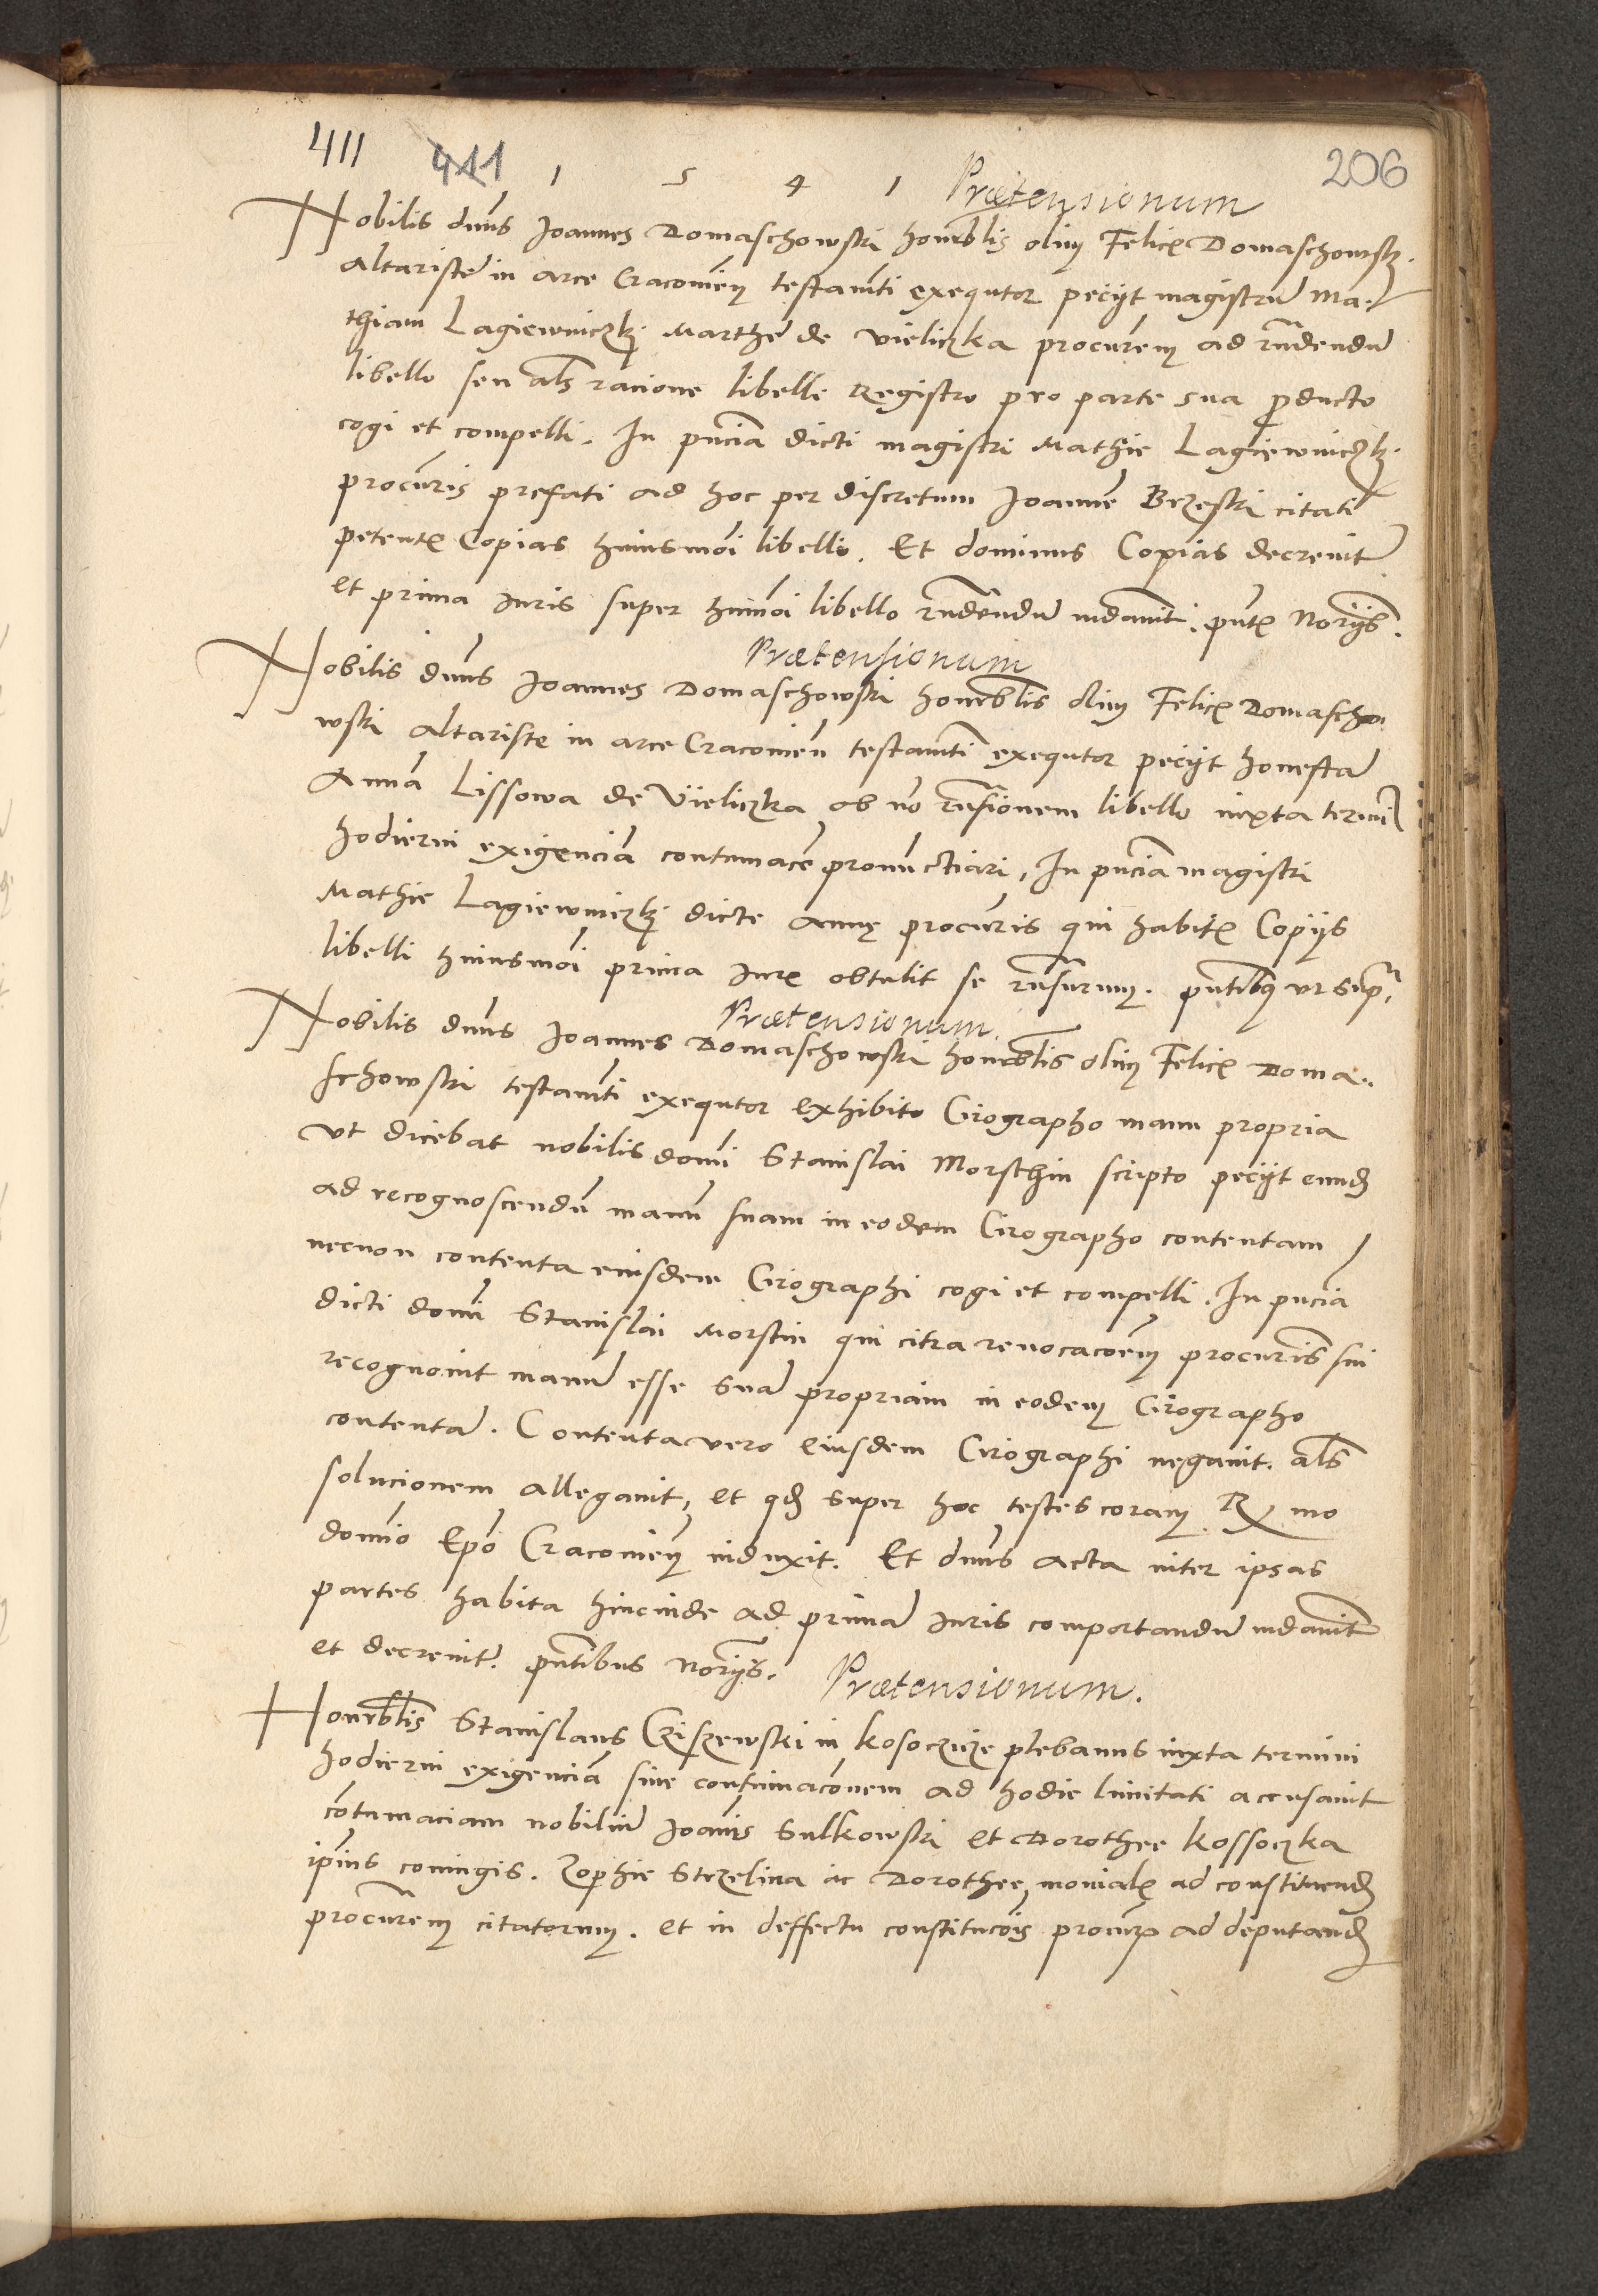 411 411 1 5 4 1 Prætensionum 206
Nobilis dnus Joannes Domaschowski honorblis olim Felicis Domaschowsky
Altariste in arce Cracovien testamti exequtor peciit magistru Ma-
thiam Lagiewniczky Marthe de Vieliczka procurem ad rndendu
libello seu als racione libelli Registro pro parte sua producto
cogi et compelli. In pncia dicti magistri Mathie Lagiewniczky
procuris prefati ad hoc per discretum Joanne Brzeski citati
petentis Copias huiusmoi libelli. Et dominus Copias decrevit
et prima iuris super huimoi libello rndendu mdavit. pntibus Noriis.
Prætensionum
Nobilis dnus Joannes Domaschowski honorblis olim Felicis Domascho
wski Altariste in arce Cracovien testamti exequtor peciit honesta
Anna Lissowa de Vieliczka ob no rnsionem libello iuxta termi
hodierni exigencia contumace pronunctiari, In pncia magistri
Mathie Lagiewniczky dicte Annę procuris qui habitis Copiis
libelli huiusmoi prima Iuris obtulit se rnsurum. pntibus ut supra
Prætensionum
Nobilis dnus Joannes Domaschowski honorblis olim Felicis Doma-
schowski testamti exequtor exhibito Cirographo manu propria
ut dicebat nobilis domi Stanislai Morschin scripto peciit eund
ad recognoscendu manu suam in eodem Cirographo contentam
necnon contenta eiusdem Cirographi cogi et compelli. In pncia
dicti domi Stanislai Morstin qui citra revocacoem procuris sui
recognovit manu esse sua propriam in eodem Cirographo
contenta. Contenta vero eiusdem Cirographi negavit. als
solucionem allegavit, et qd super hoc testes coram Rmo
domio Epo Cracovien induxit. Et dnus acta inter ipsas
partes habita hincinde ad prima iuris comportandu mdavit
et decrevit. pntibus Noriis. Prætensionum.
Honorblis Stanislaus Cziszewski in Kosoczicze plebanus iuxta termini
hodierni exigencia sive continuaconem ad hodie limitati accusavit
cotumaciam nobiliu Joanis Sulkowski et Dorothee Kossoczka
ipius coniugis. Zophie Strzelina ac Dorothee monialis ad constituend
procurem citatorum. et in deffectu constitucois procuris ad deputand